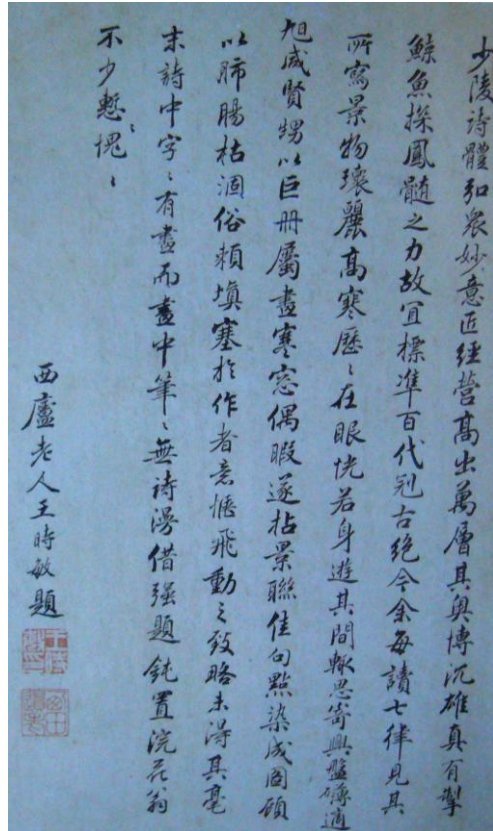 少陵詩體弘衆妙意匠經營高出萬層其奥博沉雄真有掣
鯨魚探鳳髓之力故宜標準百代冠古絶今余每讀七律見其
所寫景物瓌麗高寒歷〻在眼恍若身遊其間輙思寄興盤礴適
旭咸賢甥以巨册屬畫寒窓偶暇遂拈景聯佳句點染成圖顧
以肺腸枯涸俗賴填塞於作者意愜飛動之致略未得其毫
末詩中字〻有畫而畫中筆〻無詩漫借强題鈍置浣花翁
不少慙〻愧〻
西廬老人王時敏題